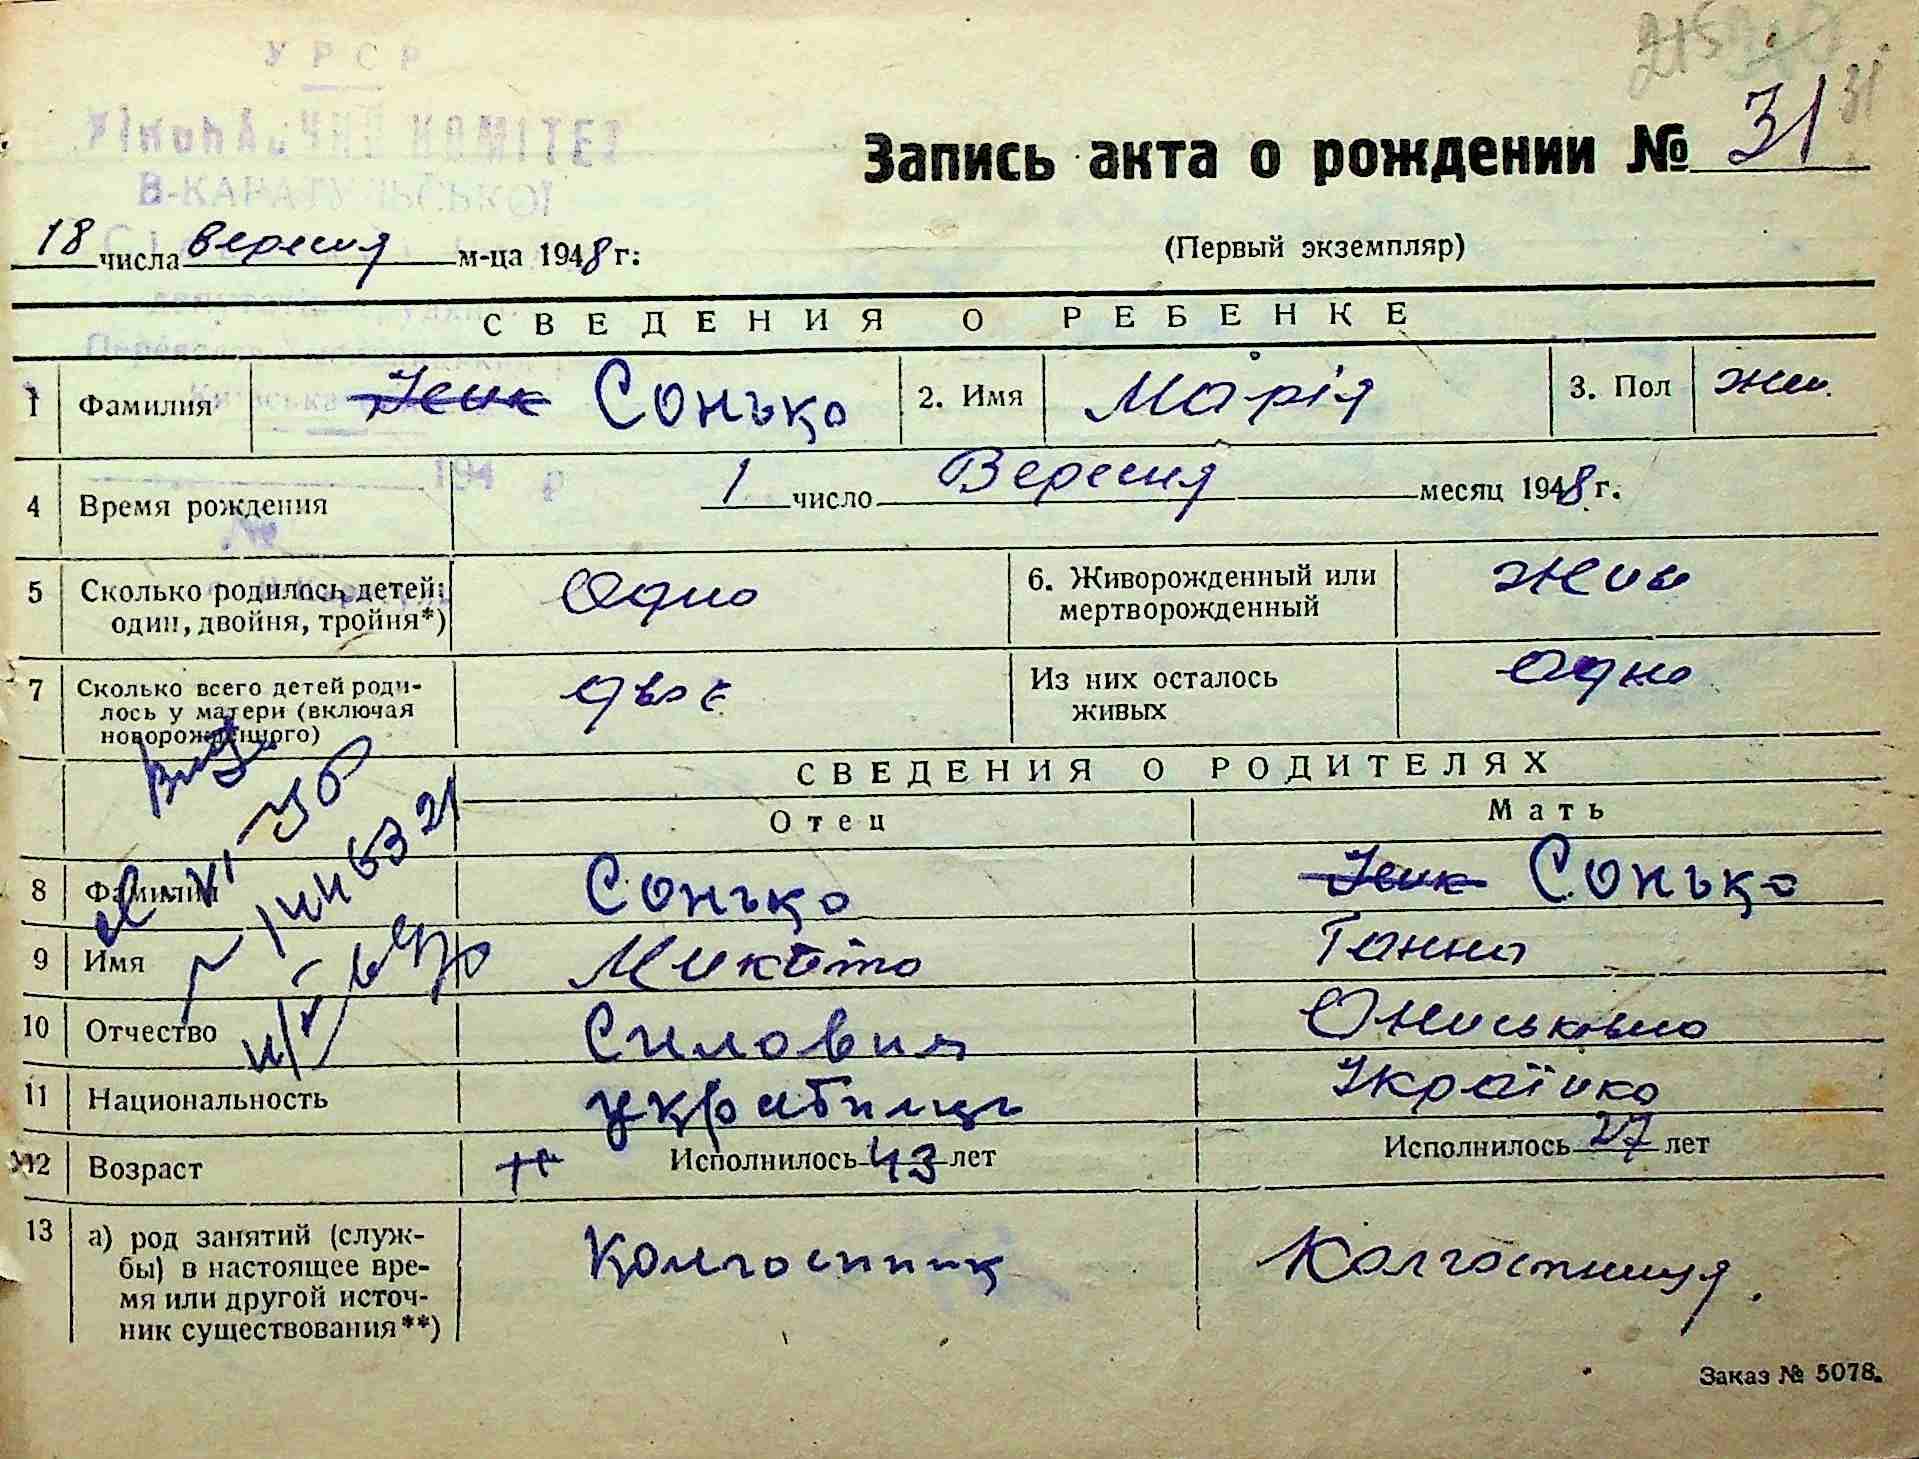 УРСР
КОМІТЕТ
В-КАРАТУЛЬСЬКОЇ
Запись акта о рождении № 31
31
18 числа вересня м-ца 1948 г.
(Первый экземпляр)
СВЕДЕНИЯ О РЕБЕНКЕ
1 Фамилия Сонько 2. Имя Марія 3. Пол жін.
4 Время рождения 1 число Вересня месяц 1948 г.
194 р
№
5 Сколько родилось детей: один, двойня, тройня*) Одно 6. Живорожденный или мертворожденный
7 Сколько всего детей родилось у матери (включая новорожденного) двоє Из них осталось живых Одно
СВЕДЕНИЯ О РОДИТЕЛЯХ
Отец Мать
8 Фамилия Сонько Сонько
9 Имя Микита Ганна
10 Отчество Силович Ониськовна
11 Национальность українець Українка
12 Возраст Исполнилось 43 лет Исполнилось 27 лет
13 а) род занятий (службы) в настоящее время или другой источник существования**) Колгоспник Колгоспниця.
Заказ № 5078.